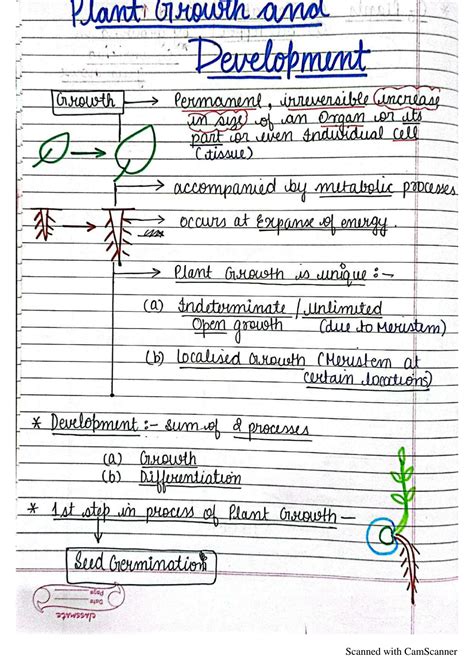 Plant Growth and
Development
Growth → Permanent, irreversible increase
in size of an Organ or its
part or even Individual cell
(tissue)
→ accompanied by metabolic processes
→ occurs at Expanse of energy.
→ Plant Growth is unique :-
(a) Indeterminate / Unlimited
Open growth (due to Meristem)
(b) Localised Growth (Meristem at
certain locations)
* Development :- sum of 2 processes
(a) Growth
(b) Differentiation
* 1st step in process of Plant Growth —
Seed Germination
classmate
Date
Page
Scanned with CamScanner